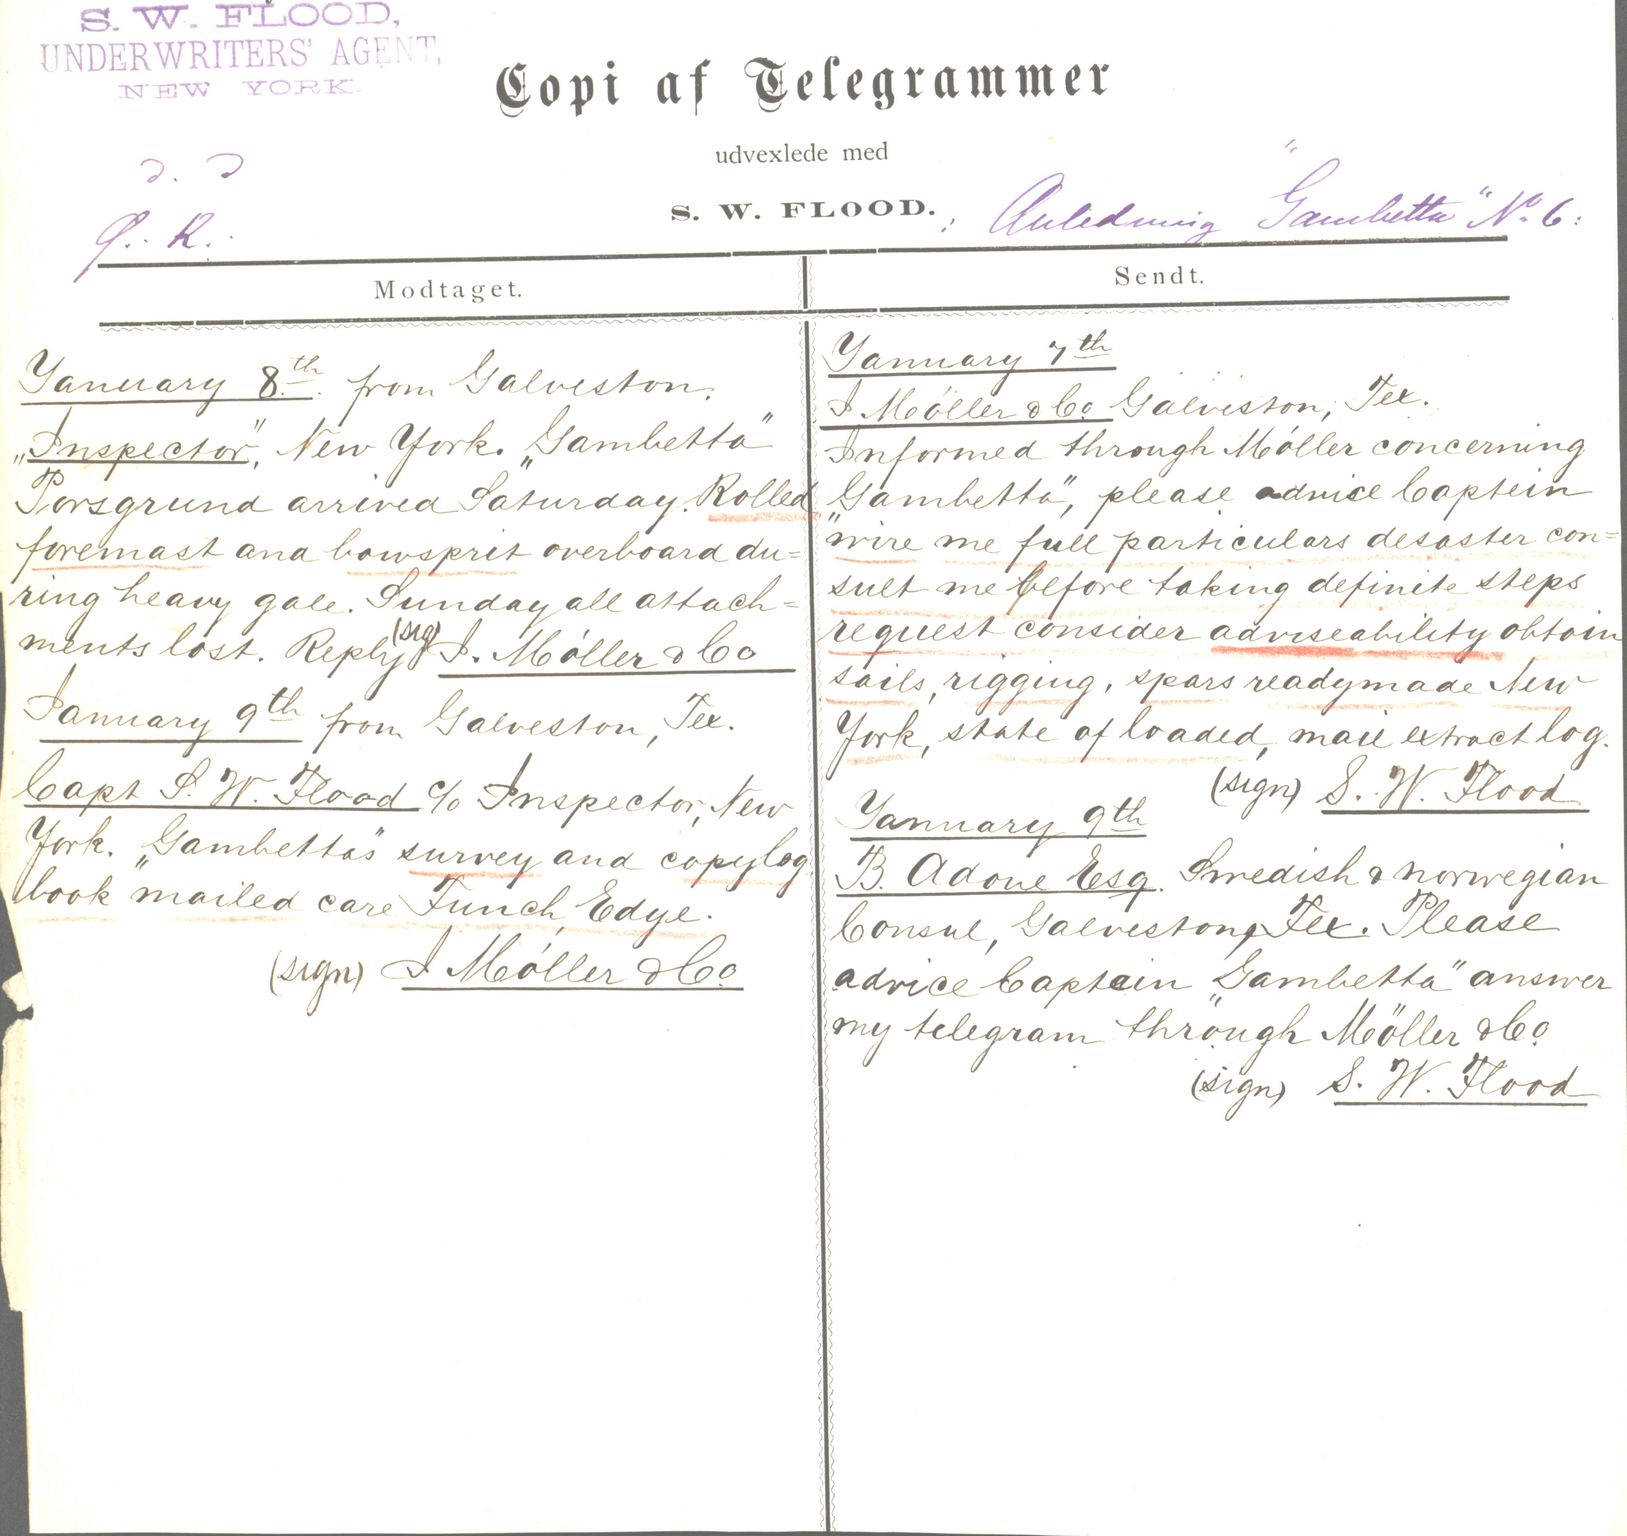 S. W. FLOOD,
UNDERWRITERS' AGENT,
NEW YORK.
Copi af Telegrammer
udvexlede med
S. W. FLOOD.
: Anledning "Gambetta" No. 6:
Modtaget.
January 8th. from Galveston.
"Inspector", New York. "Gambetta"
Porsgrund arrived Saturday. Rolled
foremast and bowsprit overboard du=
ring heavy gale. Sunday all attach=
ments lost. Reply (sig) I. Möller & Co
January 9th from Galveston, Tex.
Capt S. W. Flood c/o Inspector, New
York. "Gambetta's" survey and copy log
book mailed care Funch, Edye.
(sign) I Möller & Co.
Sendt.
January 7th
I Möller & Co. Galveston, Tex.
Informed through Möller concerning
"Gambetta", please advice Captein
wire me full particulars desaster con=
sult me before taking definite steps
request consider adviseability obtain
sails, rigging, spars readymade New
York, state of loaded, mail extract log.
(sign) S. W. Flood
January 9th
B. Adoue Esq. Swedish & norwegian
Consul, Galveston, Tex. Please
advice Captein "Gambetta" answer
my telegram through Möller & Co.
(sign) S. W. Flood